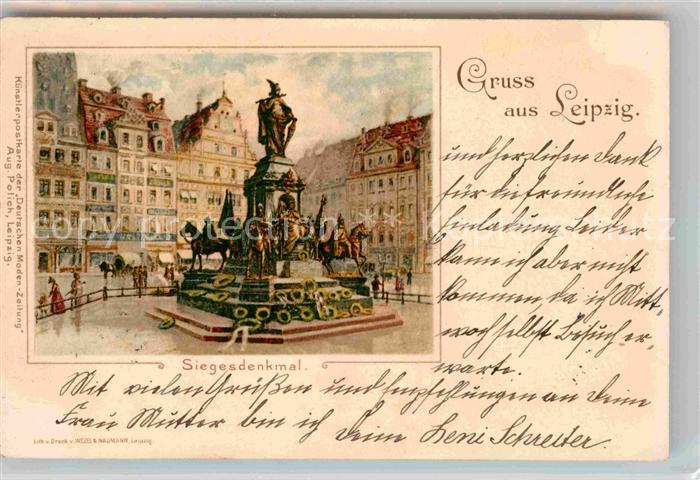 Gruss
aus Leipzig.
Künstlerpostkarte der „Deutschen Moden-Zeitung"
Aug. Polich, Leipzig.
und herzlichen Dank
für die freundliche
Einladung. Leider
kann ich aber nicht
kommen, da ich Mitt-
woch selbst Besuch er-
warte.
copy protection
Siegesdenkmal.
Mit vielen Grüßen und Empfehlungen an Deine
Frau Mutter bin ich Deine Leni Schreiter.
Lith. u. Druck v. WEZEL & NAUMANN, Leipzig.